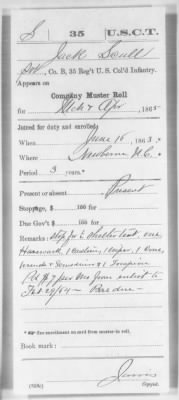 S 35 U.S.C.T.
Jack Scull
Pvt., Co. B, 35 Reg't U. S. Col'd Infantry.
Appears on
Company Muster Roll
for Mch & Apr, 1865
Joined for duty and enrolled:
When June 15, 1863.
Where Newbern N.C.
Period 3 years.*
Present or absent Present
Stoppage, $ 100 for
Due Gov't $ 100 for
Remarks: Stop for 1 Shelter tent, one
Haversack, 1 Canteen,
& 1 Tompion
Pd $7 per Mo from enlist to
Feb 29/64
* See enrollment on card from muster-in roll.
Book mark:
(858c) Copyist.